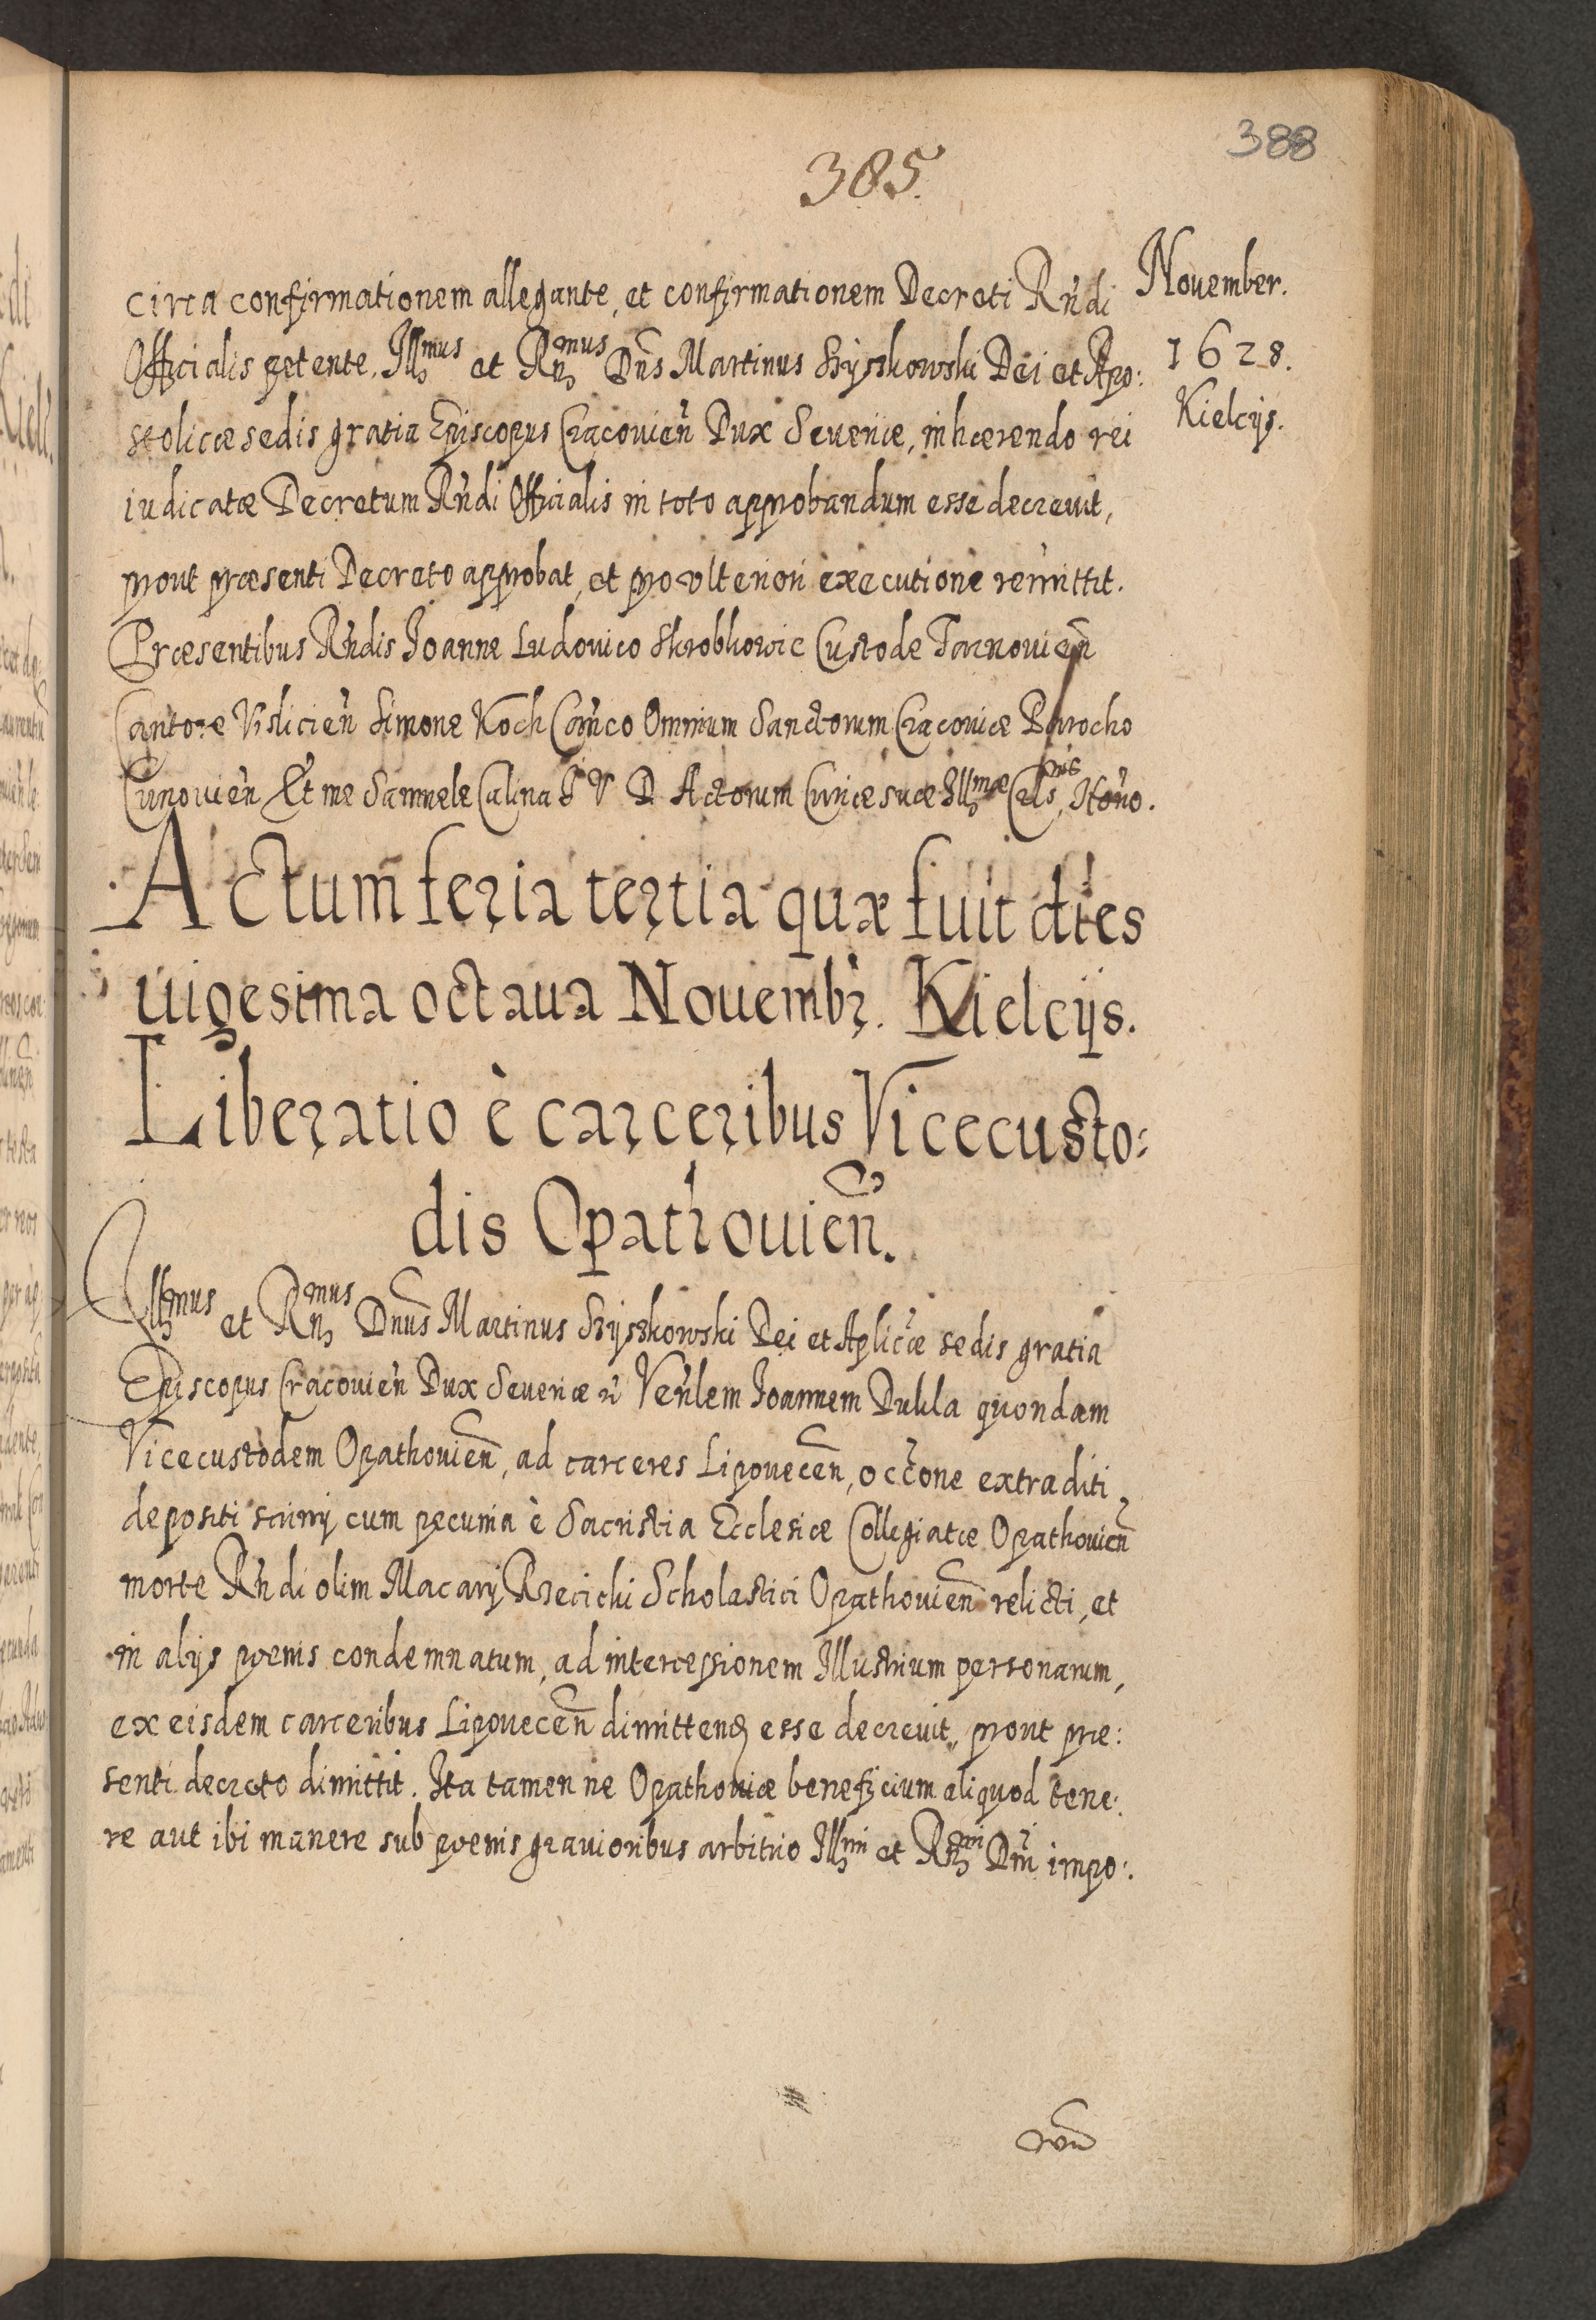 388
385.
November.
1628.
Kielcijs.
circa confirmationem allegante, et confirmationem Decreti Rndi
Officialis petente. Illmus et Rnmus Dns Martinus Szyszkowski Dei et Apo:
stolicæ sedis gratia Episcopus Cracovien Dux Severiæ, inhærendo rei
iudicatæ Decretum Rndi Officialis in toto approbandum esse decrevit,
prout præsenti Decreto approbat, et pro ulteriori executione remittit.
Præsentibus Rndis Ioanne Ludovico Skrobkowic Custode Tarnovien
Cantore Vislicien Simone Koch Canco Omnium Sanctorum Cracoviæ Parocho
Cunovien Et me Samuele Calina I V D. Actorum Curiæ suæ Illmæ Celsnis Notrio.
Actum feria tertia quæ fuit dies
uigesima octaua Nouembr. Kielcijs.
Liberatio è carceribus Vicecusto:
dis Opathouien.
Illmus et Rnmus Dnus Martinus Szyszkowski Dei et Aplicæ sedis gratia
Episcopus Cracouien Dux Seueriæ Venlem Ioannem Dukla quondam
Vicecustodem Opathouien, ad carceres Lipouecen, occone extraditi
depositi scrinij cum pecunia è Sacristia Ecclesiæ Collegiatæ Opathouien
morte Rndi olim Macarij Rzecicki Scholastici Opathouien relicti, et
in alijs pœnis condemnatum, ad intercessionem Illustrium personarum,
ex eisdem carceribus Lipouecen dimittend esse decreuit, prout præ:
senti decreto dimittit. Ita tamen ne Opathouiæ beneficium aliquod tene:
re aut ibi manere sub pœnis grauioribus arbitrio Illmi et Rnmi Dni impo:.